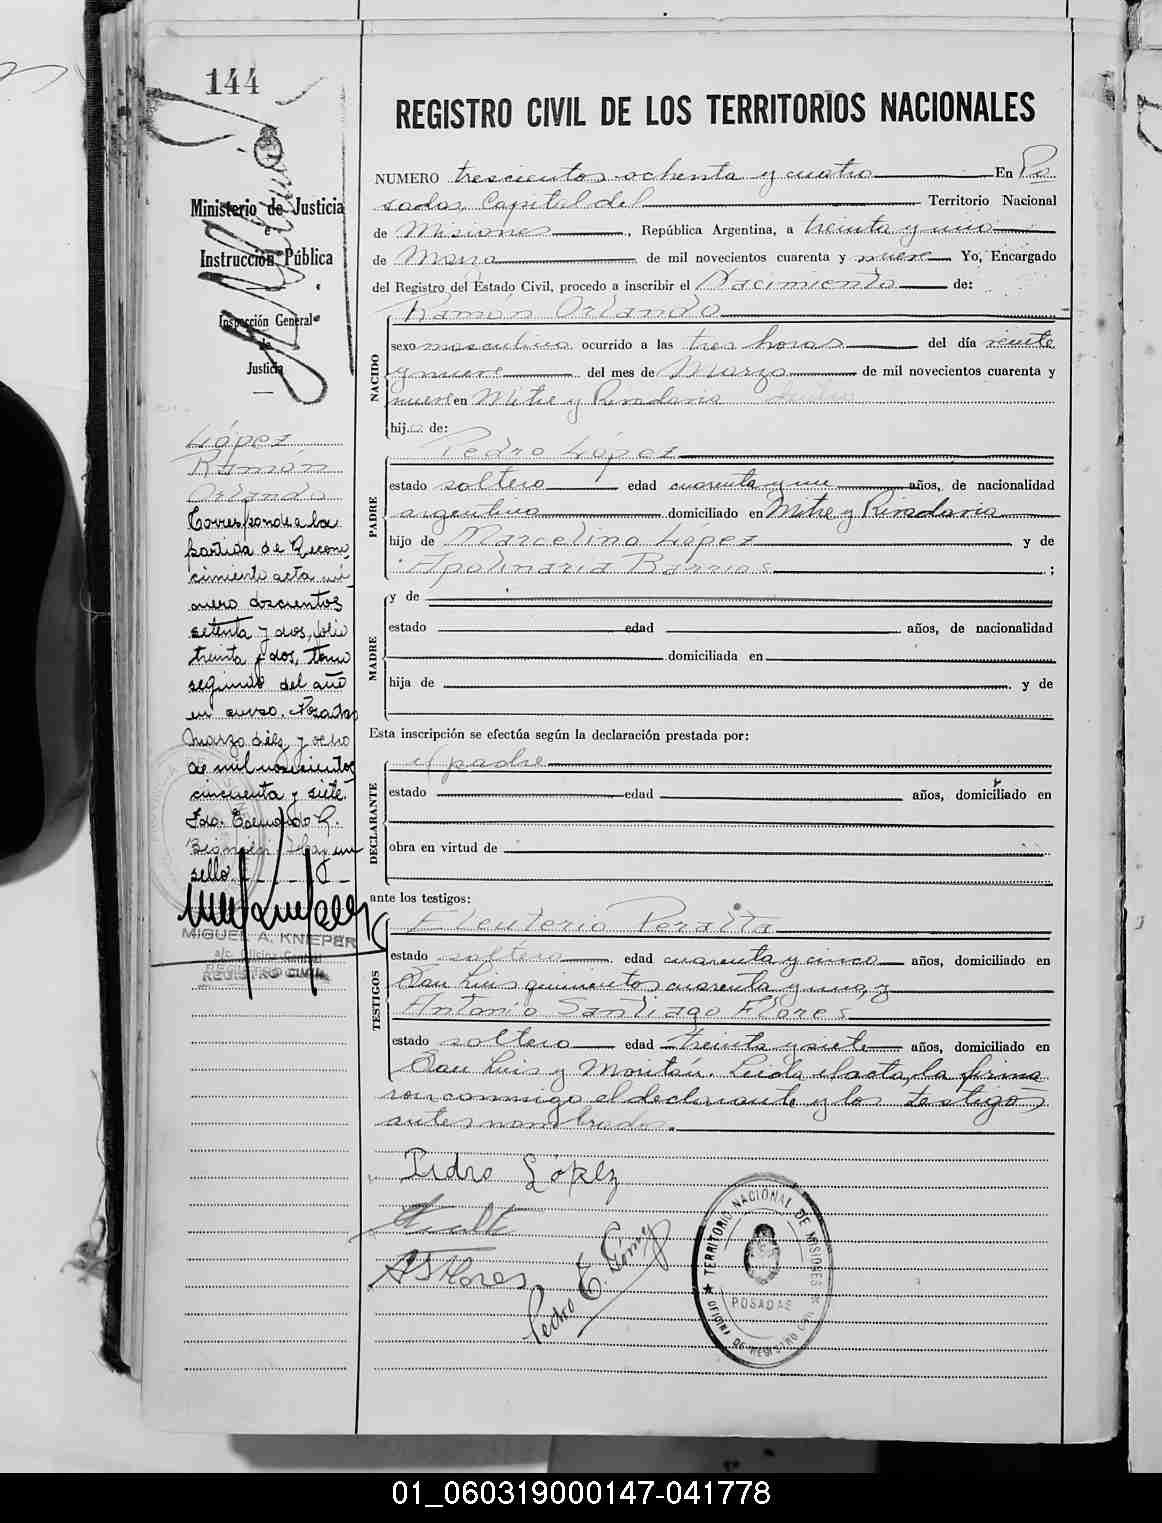 144
Ministerio de Justicia
e
Instrucción Pública
Inspección General
de
Justicia
López
Ramón
Orlando
Corresponde a la
partida de Recono
cimiento acta nú
mero doscientos
setenta y dos, folio
treinta y dos, tomo
segundo del año
en curso. Posadas
Marzo diez y ocho
de mil novecientos
cincuenta y siete.
Fdo.
Hay un
sello
MIGUEL A. KNIEPER
a/c. Oficina Central
REGISTRO CIVIL
REGISTRO CIVIL DE LOS TERRITORIOS NACIONALES
NUMERO trescientos ochenta y cuatro En Po
sadas Capital del Territorio Nacional
de Misiones, República Argentina, a treinta y uno
de Marzo de mil novecientos cuarenta y nueve Yo, Encargado
del Registro del Estado Civil, procedo a inscribir el Nacimiento de:
Ramón Orlando
NACIDO
sexo masculino ocurrido a las tres horas del día veinte
y nueve del mes de Marzo de mil novecientos cuarenta y
nueve en Mitre y Rivadavia
hijo de:
PADRE
Pedro López
estado soltero edad cuarenta y un años, de nacionalidad
argentina domiciliado en Mitre y Rivadavia
hijo de Marcelino López y de
Apolinaria Barrios ;
MADRE
y de
estado edad años, de nacionalidad
domiciliada en
hija de y de
Esta inscripción se efectúa según la declaración prestada por:
DECLARANTE
el padre
estado edad años, domiciliado en
obra en virtud de
ante los testigos:
TESTIGOS
Eleuterio Peralta
estado soltero edad cuarenta y cinco años, domiciliado en
San Luis quinientos cuarenta y uno, y
Antonio Santiago Flores
estado soltero edad treinta y siete años, domiciliado en
San Luis y Moritan. Leída el acta, la firma
ron conmigo el declarante y los testigos
antes nombrados.
Pedro López
ASFlores
Pedro E. Gómez
TERRITORIO NACIONAL DE MISIONES
POSADAS
OFICINA DE REGISTRO CIVIL
01_060319000147-041778